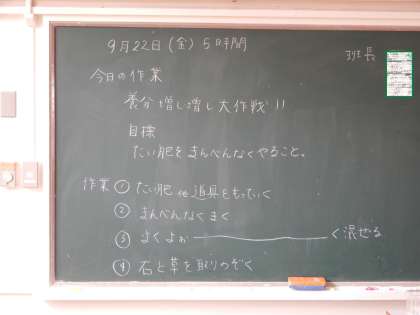 9月22日(金) 5時間
班長
今日の作業
養分増し増し大作戦!!
目標
たい肥をまんべんなくやること。
作業 ① たい肥 他 道具をもっていく
② まんべんなくまく
③ よくよぉ――――――く混ぜる
④ 石と草を取りのぞく